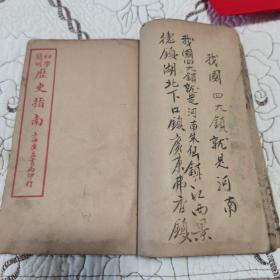 初學
簡明
歷史指南
上海廣益書局印行
我國四大鎮就是河南
我國四大鎮就是河南朱仙鎮江西景
德鎮湖北下口鎮廣东弗呑鎮